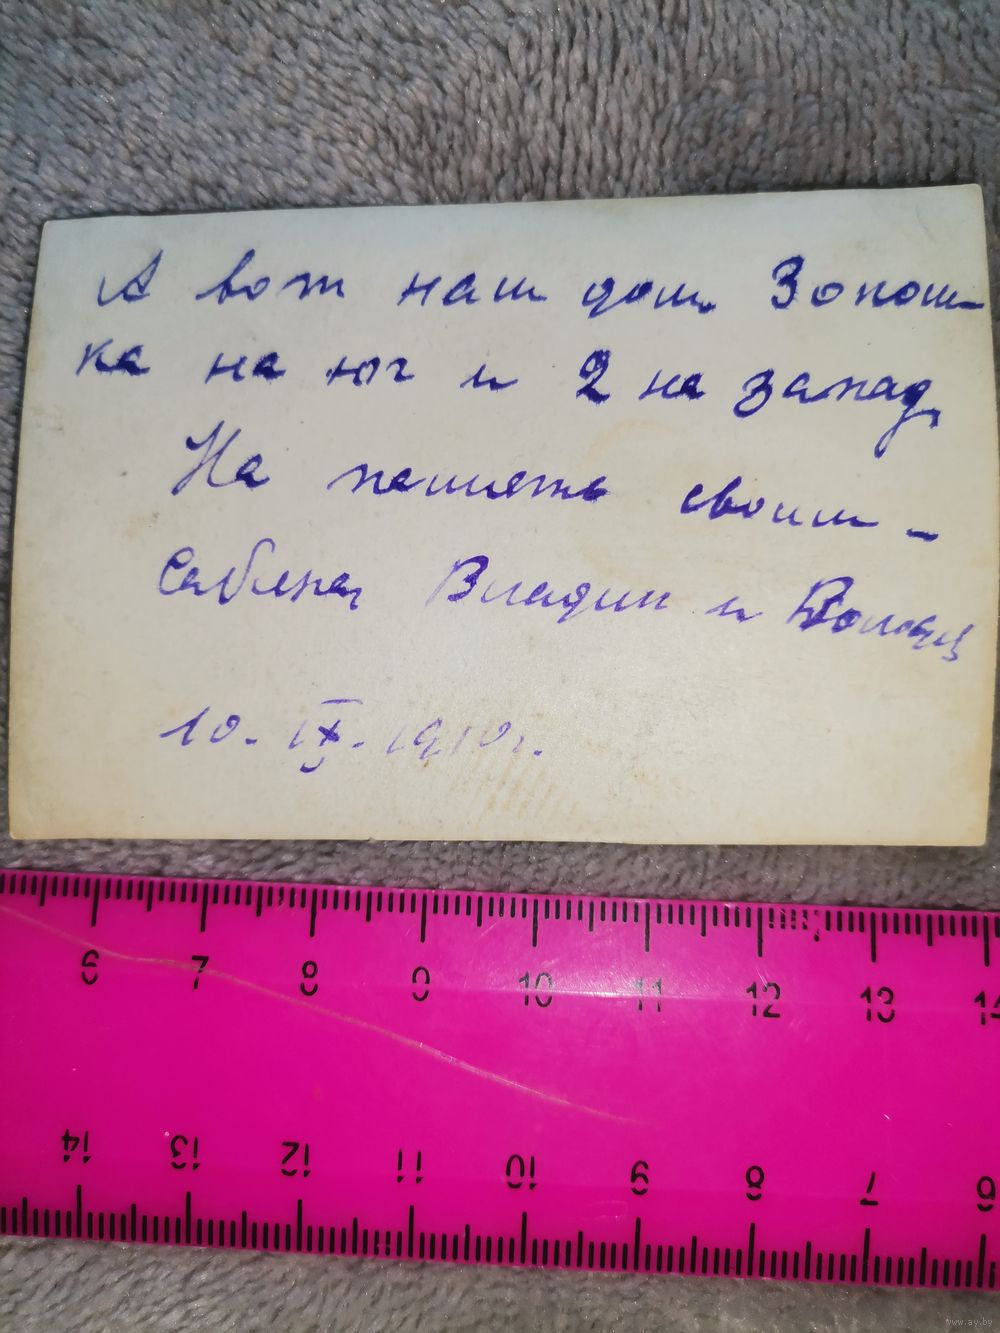 А вот наш дом 3 окош-
ка на юг и 2 на запад,
На память своим -
Владик и
10. IX. 19
6 7 8 9 10 11 12 13 14
14 13 12 11 10 9 8 7 6
www.ay.by